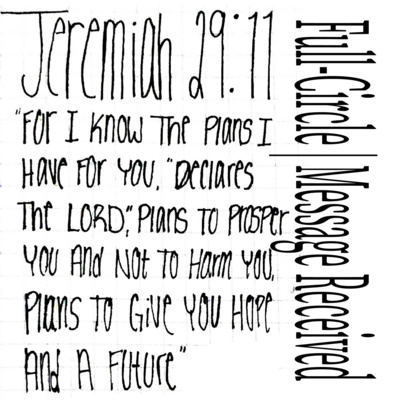 Jeremiah 29:11
"For I Know The Plans I
Have For You, "Declares
The LORD", Plans To Prosper
You And Not To Harm You,
Plans To Give You Hope
And A Future"
Full-Circle | Message Received